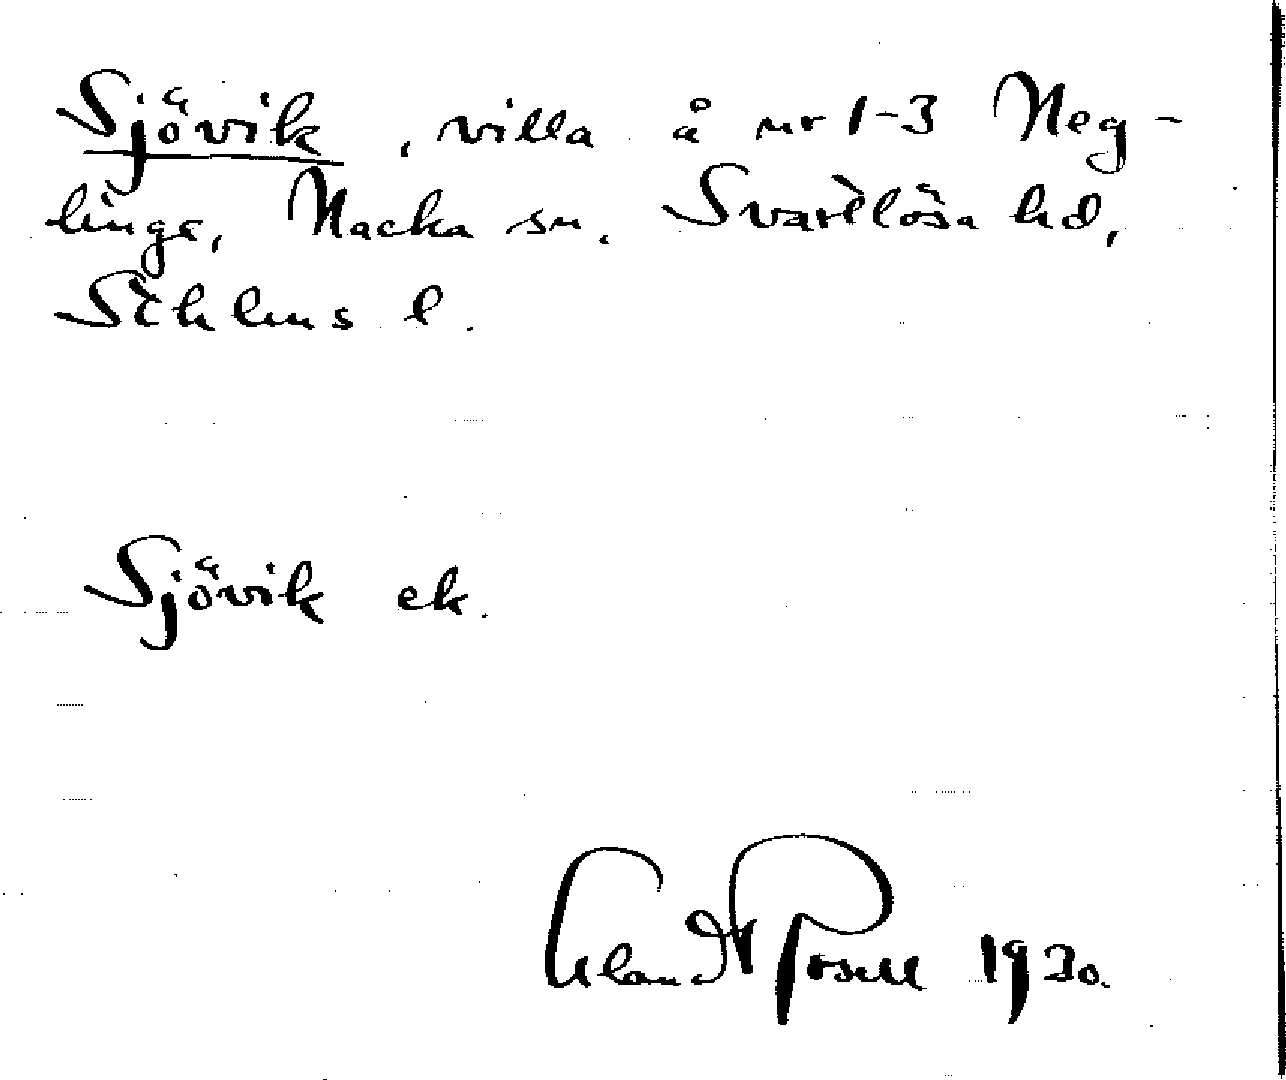 Sjövik, villa å nr 1-3 Neg-
linge, Nacka sn. Svartlösa hd,
Sthlms l.
Sjövik ek.
1930.